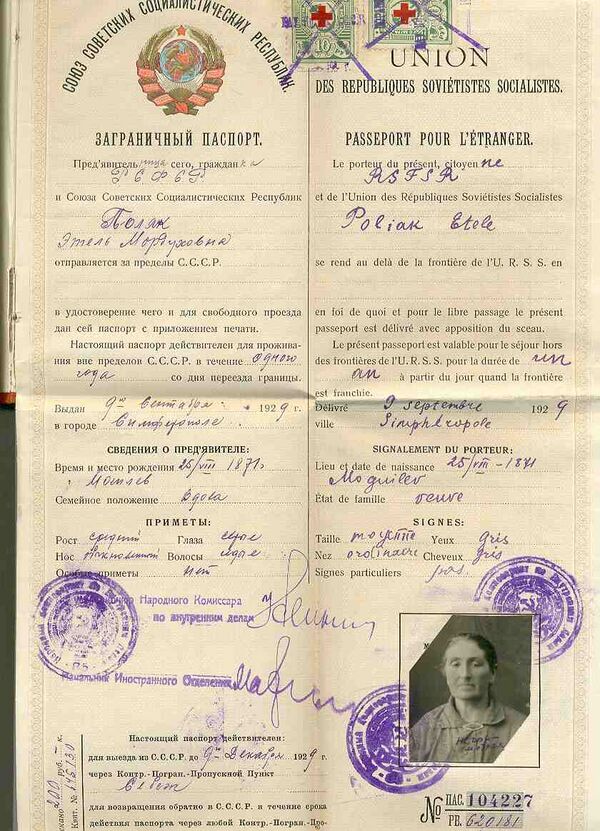 СОЮЗ СОВЕТСКИХ СОЦИАЛИСТИЧЕСКИХ РЕСПУБЛИК.
ЗАГРАНИЧНЫЙ ПАСПОРТ.
Пред'явительница сего, гражданка
РСФСР
и Союза Советских Социалистических Республик
Поляк
Этель Мордуховна
отправляется за пределы С.С.С.Р.
в удостоверение чего и для свободного проезда
дан сей паспорт с приложением печати.
Настоящий паспорт действителен для прожива-
ния вне пределов С.С.С.Р. в течение одного
года со дня переезда границы.
Выдан 9го Сентября 1929 г.
в городе Симферополе
СВЕДЕНИЯ О ПРЕД'ЯВИТЕЛЕ:
Время и место рождения 25/VIII 1871г.
Могилев
Семейное положение вдова
ПРИМЕТЫ:
Рост средний Глаза серые
Нос Волосы
Особые приметы нет
Народного Комиссара
по внутренним делам
Начальник Иностранного Отделения
Настоящий паспорт действителен:
для выезда из С.С.С.Р. до 9го Декабря 1929 г.
через Контр.-Погран.-Пропускной Пункт
для возвращения обратно в С.С.С.Р. в течение срока
действия паспорта через любой Контр.-Погран.-Про-
10
UNION
DES REPUBLIQUES SOVIÉTISTES SOCIALISTES.
PASSEPORT POUR L'ÉTRANGER.
Le porteur du présent, citoyenne
RSFSR
et de l'Union des Républiques Soviétistes Socialistes
Poliak Etele
se rend au delà de la frontière de l'U. R. S. S. en
en foi de quoi et pour le libre passage le présent
passeport est délivré avec apposition du sceau.
Le présent passeport est valable pour le séjour hors
des frontières de l'U. R. S. S. pour la durée de un
an à partir du jour quand la frontière
est franchie.
Délivré 9 septembre 1929
ville Simphéropole
SIGNALEMENT DU PORTEUR:
Lieu et date de naissance 25/VIII-1871
Moguilev
État de famille veuve
SIGNES:
Taille moyenne Yeux gris
Nez ordinaire Cheveux gris
Signes particuliers pas.
№ ПАС. 104227
РЕ. 620181